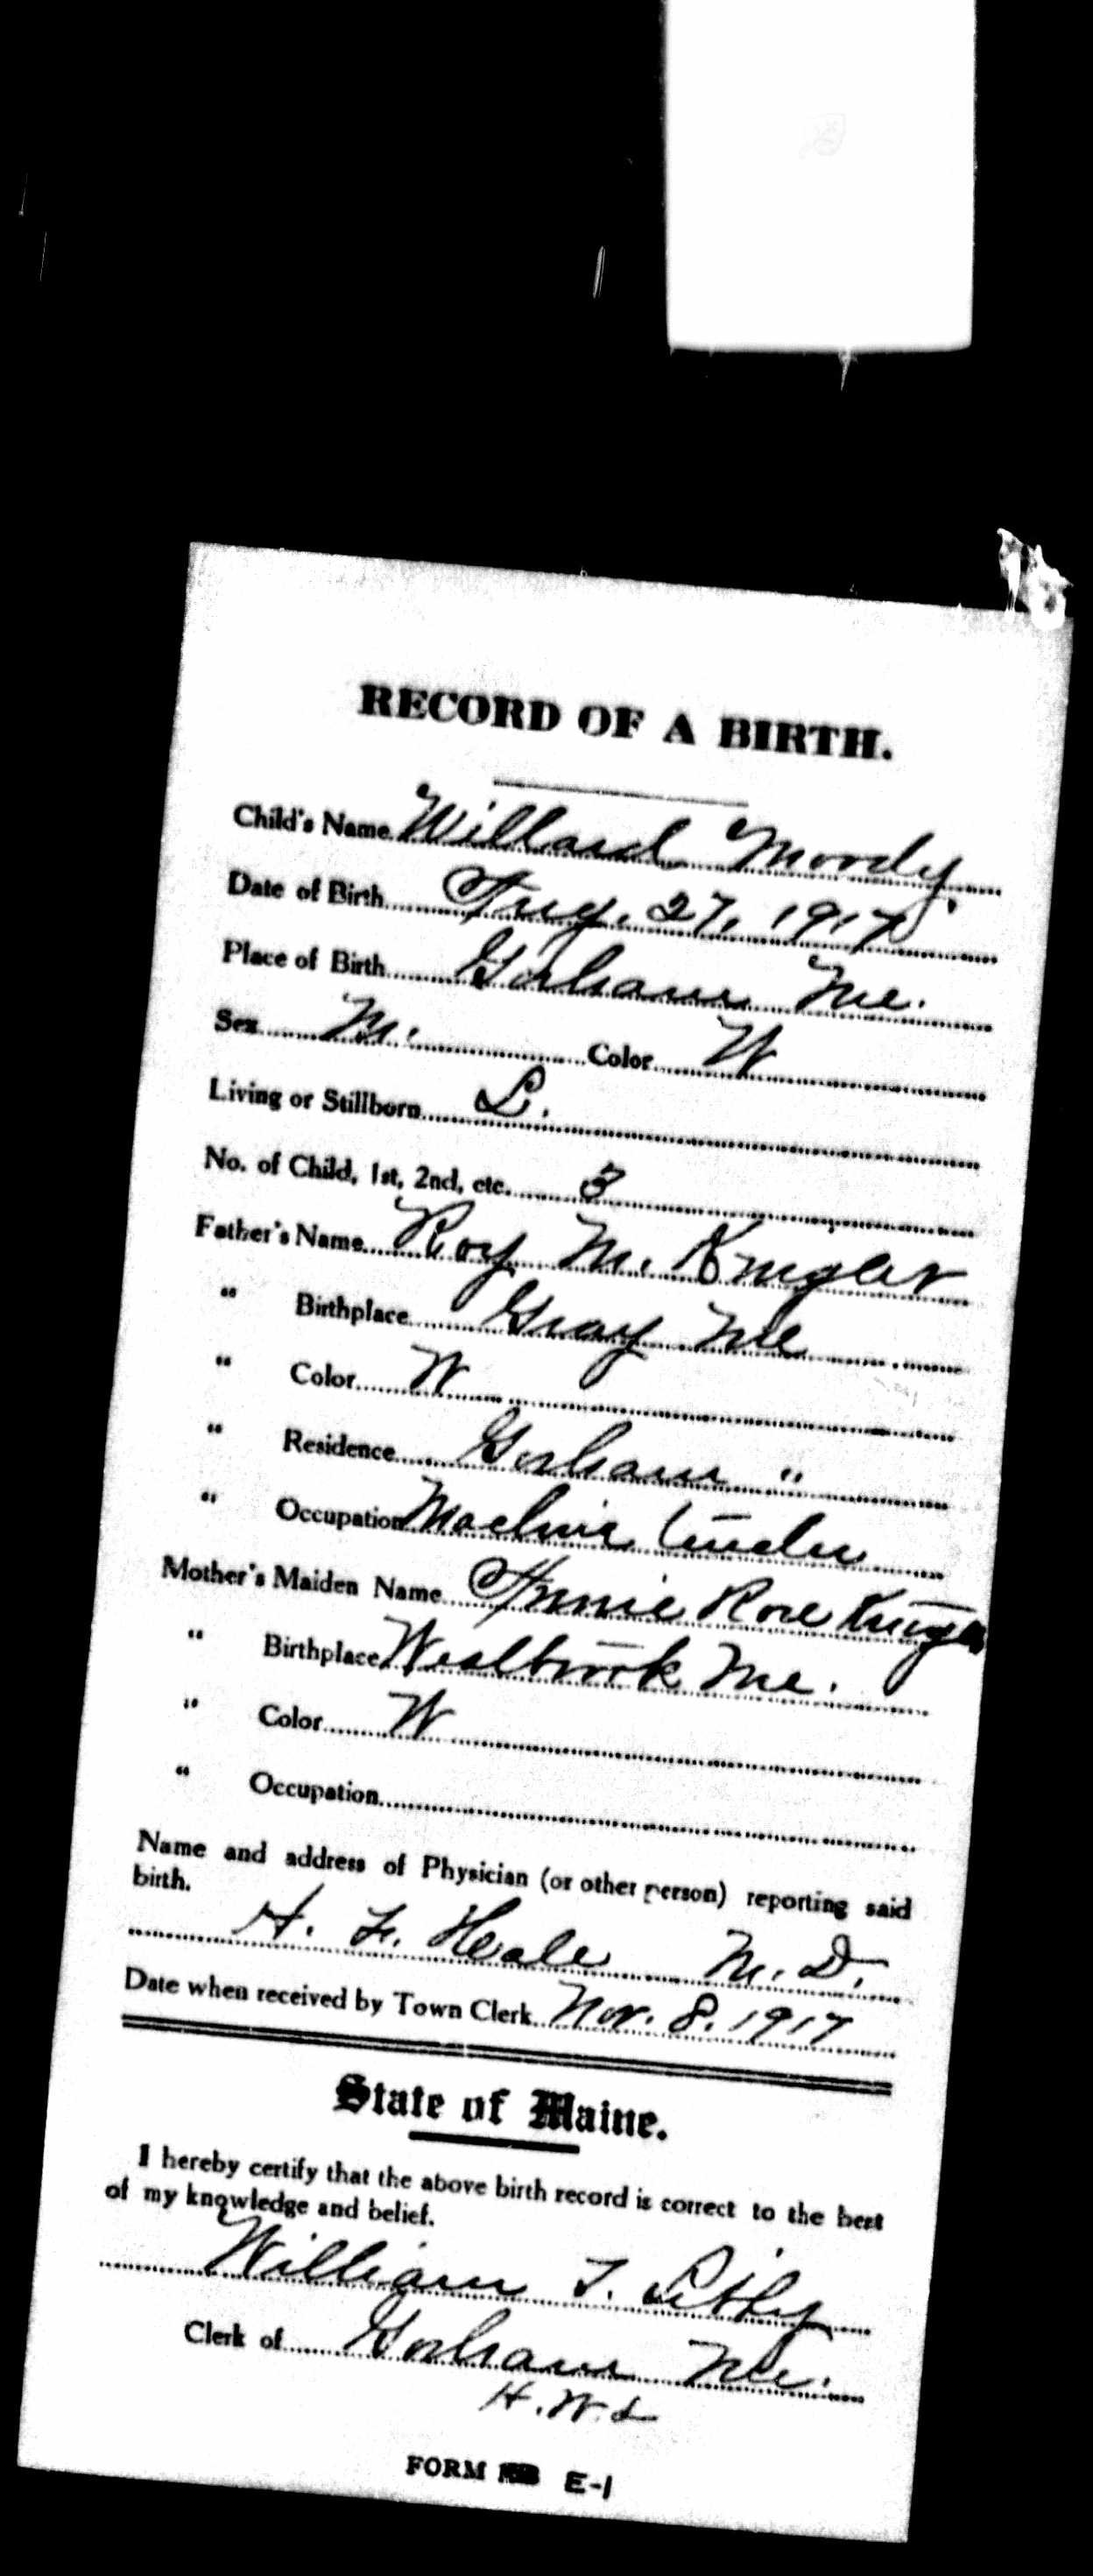 RECORD OF A BIRTH.
Child's Name Willard Moody
Date of Birth Aug. 27, 1917
Place of Birth Gorham Me.
Sex M. Color W
Living or Stillborn L.
No. of Child, 1st, 2nd, etc. 3
Father's Name Roy M.
" Birthplace Gray Me
" Color W
" Residence Gorham "
" Occupation Machine Tender
Mother's Maiden Name Annie Rose
" Birthplace Westbrook Me.
" Color W
" Occupation
Name and address of Physician (or other person) reporting said
birth.
H. F. M. D.
Date when received by Town Clerk Nov. 8. 1917
State of Maine.
I hereby certify that the above birth record is correct to the best
of my knowledge and belief.
William T. Libby
Clerk of Gorham Me.
FORM E-1